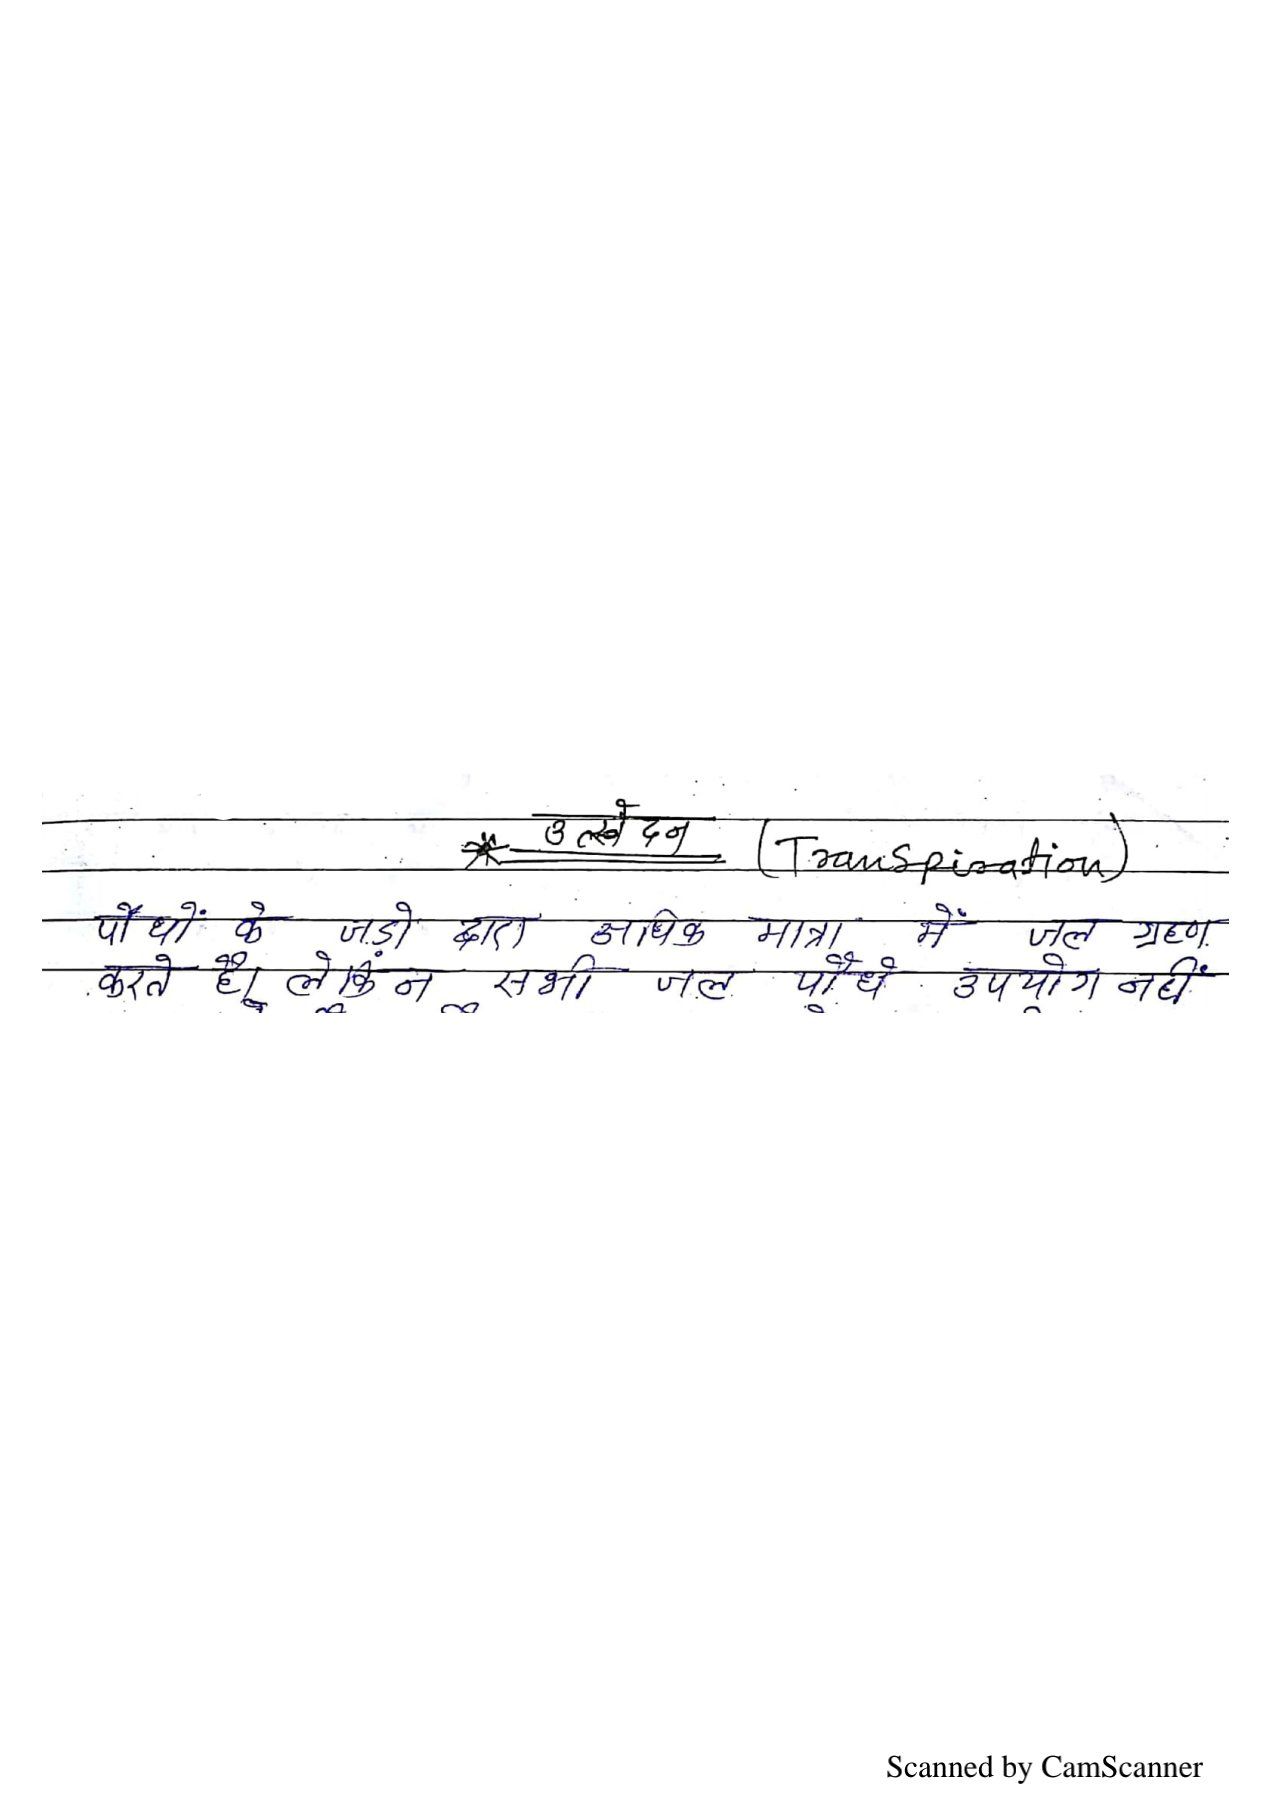 * उत्स्वेदन (Transpiration)
पौधों के जड़ो द्वारा अधिक मात्रा में जल ग्रहण
करते है, लेकिन सभी जल पौधे उपयोग नहीं
Scanned by CamScanner